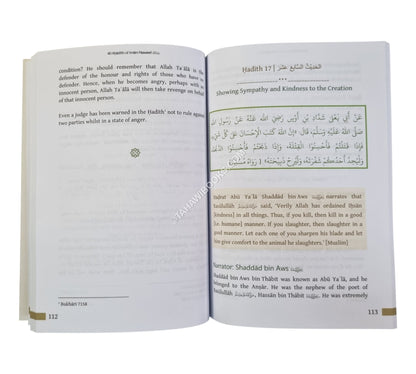 40 Ḥadīth of Imām Nawawī
condition? He should remember that Allah Ta'ālā is the
defender of the honour and rights of those who have no
defender. Hence, when he becomes angry, perhaps with an
innocent person, Allah Ta'ālā will then take revenge on behalf
of that innocent person.
Even a judge has been warned in the Ḥadīth¹ not to rule against
two parties whilst in a state of anger.
¹ Bukhāri 7158
112
Ḥadīth 17 | اَلْحَدِيْثُ السَّابِعَ عَشَرَ
Showing Sympathy and Kindness to the Creation
عَنْ أَبِي يَعْلَى شَدَّادِ بْنِ أَوْسٍ رَضِيَ اللهُ عَنْهُ عَنْ رَسُوْلِ اللهِ
صَلَّى اللهُ عَلَيْهِ وَسَلَّمَ، قَالَ: «إِنَّ اللهَ كَتَبَ الْإِحْسَانَ عَلَى كُلِّ شَيْءٍ
فَإِذَا قَتَلْتُمْ فَأَحْسِنُوا الْقِتْلَةَ، وَإِذَا ذَبَحْتُمْ فَأَحْسِنُوا الذِّبْحَةَ
وَلْيُحِدَّ أَحَدُكُمْ شَفْرَتَهُ، وَلْيُرِحْ ذَبِيْحَتَهُ» [رَوَاهُ مُسْلِمٌ]
Ḥaḍrat Abū Ya'lā Shaddād bin Aws narrates that
Rasūlullāh said, 'Verily Allah has ordained Iḥsān
[kindness] in all things. Thus, if you kill, then kill in a good
[i.e. humane] manner. If you slaughter, then slaughter in a
good manner. Let each one of you sharpen his blade and let
him give comfort to the animal he slaughters.' [Muslim]
Narrator: Shaddād bin Aws
Shaddād bin Aws bin Thābit was known as Abū Ya'lā, and he
belonged to the Anṣār. He was the nephew of the poet of
Rasūlullāh, Ḥassān bin Thābit. He was extremely
113